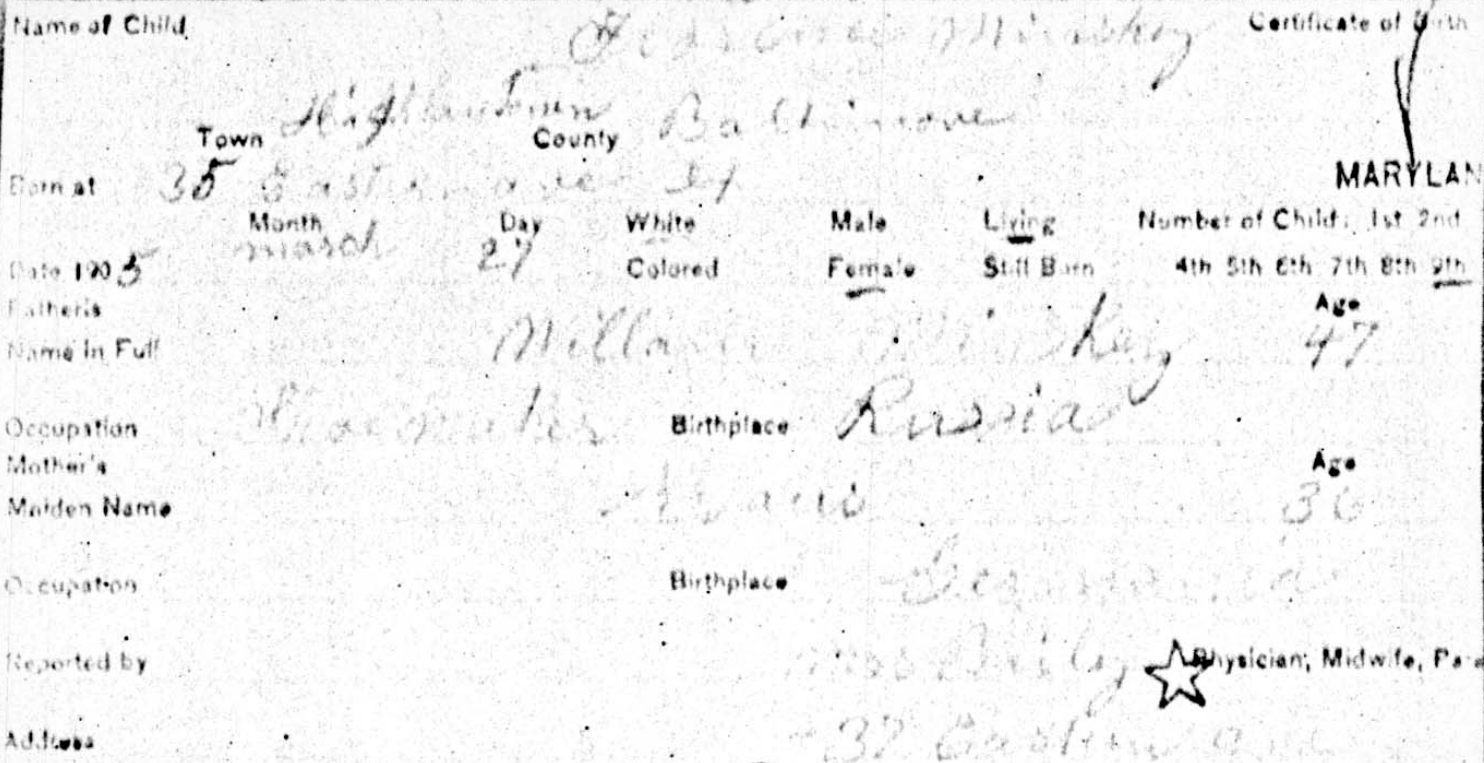 Name of Child Minskey Certificate of Birth
Town Highlantown County Baltimore
Born at 35 Eastern ave ex MARYLAN
Month Day White Male Living Number of Child: 1st 2nd
march 27
Date 1905 Colored Female Still Born 4th 5th 6th 7th 8th 9th
Father's Age
Name in Full Minskey 47
Occupation Shoemaker Birthplace Russia
Mother's Age
Maiden Name 36
Occupation Birthplace
Reported by Physician, Midwife, Pare
Address 37 Eastern ave